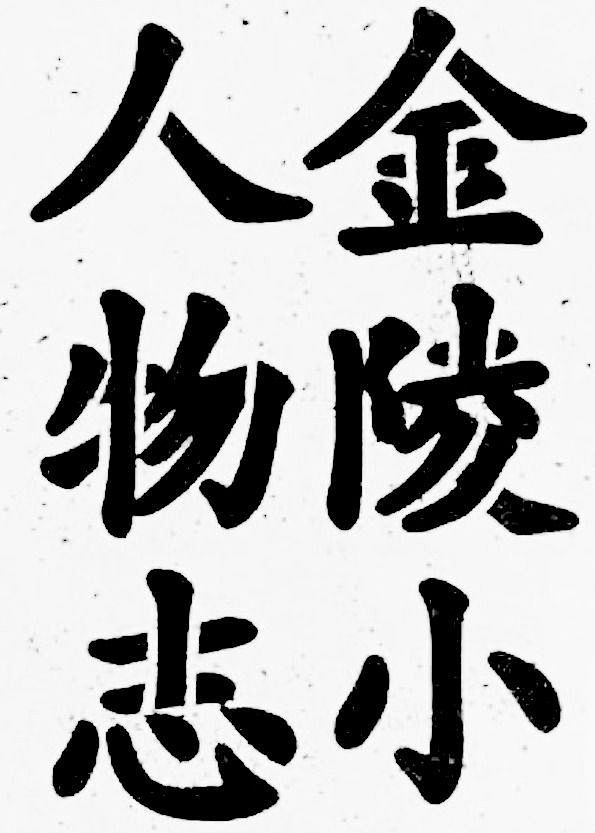 金陵小
人物志